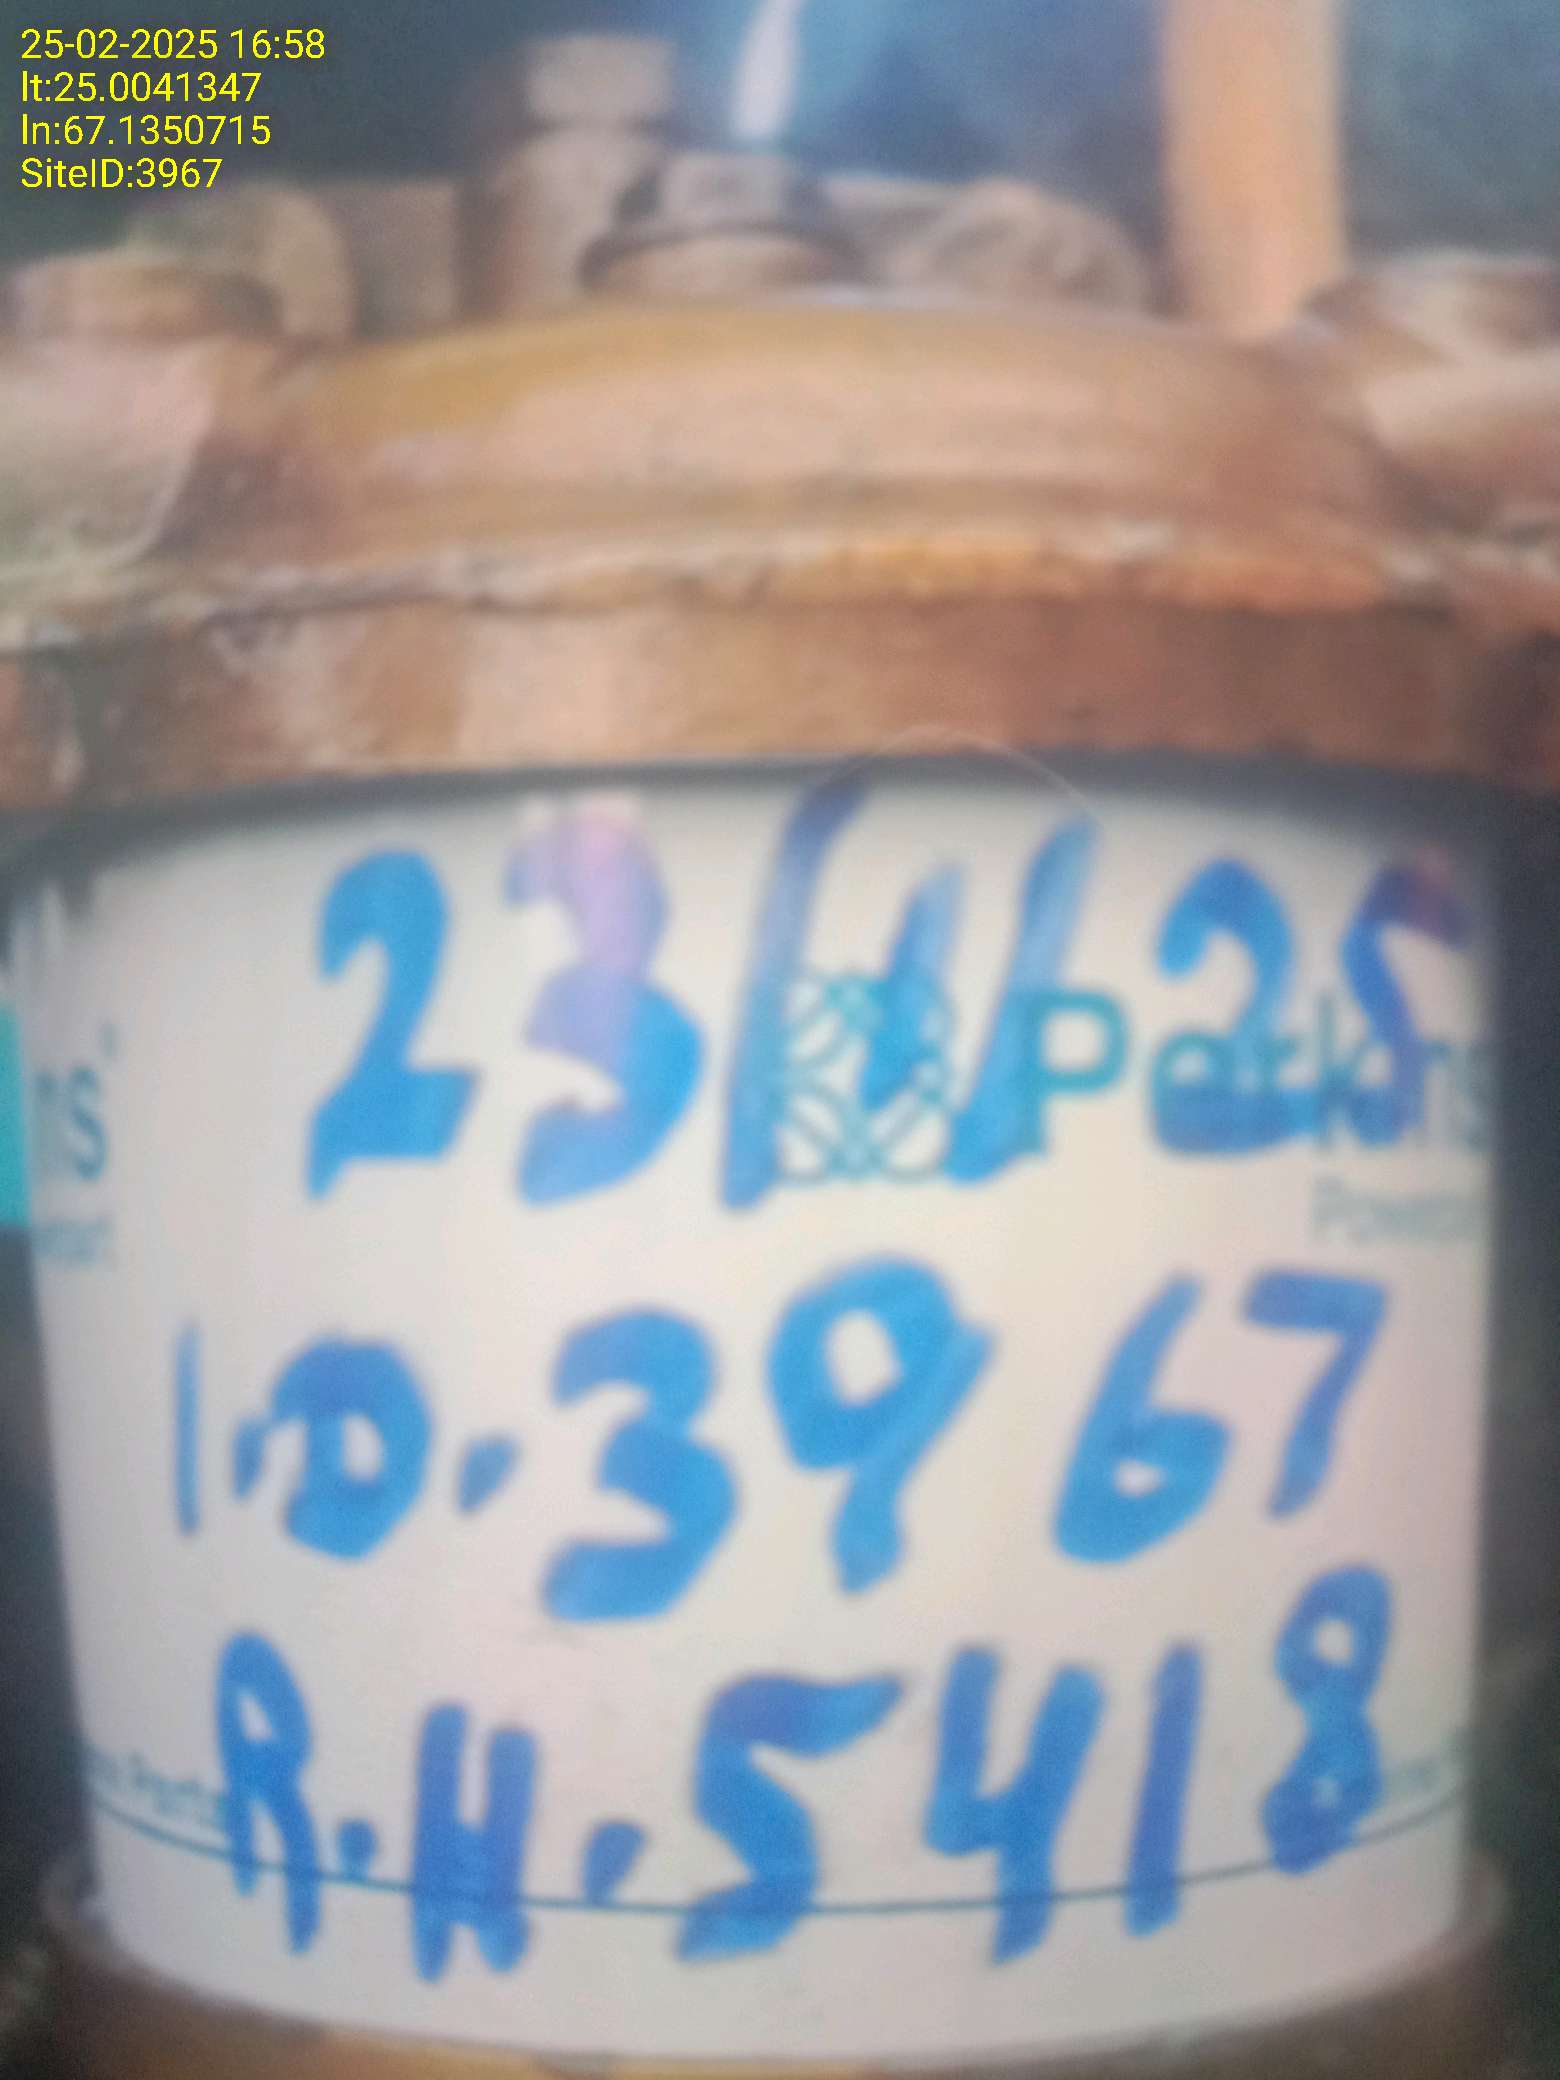 25-02-2025 16:58
lt:25.0041347
ln:67.1350715
SiteID:3967
23/1/25
Perkins
Power
I.D.3967
R.H.5418